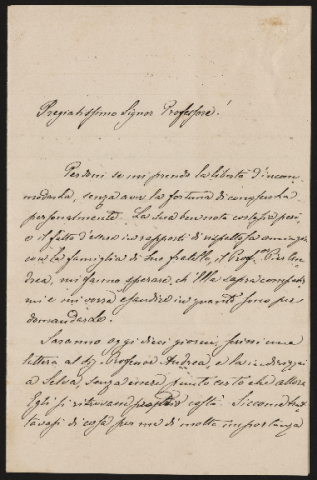 Pregiatissimo Signor Professore!
Perdoni se mi prendo la libertà d'incom-
modarla, senza aver la fortuna di conoscerla
personalmente. La sua ben nota cortesia però,
e il fatto d'essere in rapporti di rispettosa amicizia
con la famiglia di suo fratello, il Prof. Pietro An-
drea, mi fanno sperare, ch'Ella saprà
mi e mi vorrà esaudire in quanto sono per
domandarle.
Saranno oggi dieci giorni, scrissi una
lettera al Sig. Professore Andrea, e la indirizzai
a Selva, senza essere punto certo che allora
Egli si ritrovasse proprio costà. Siccome trat-
tavasi di cosa per me di molta importanza